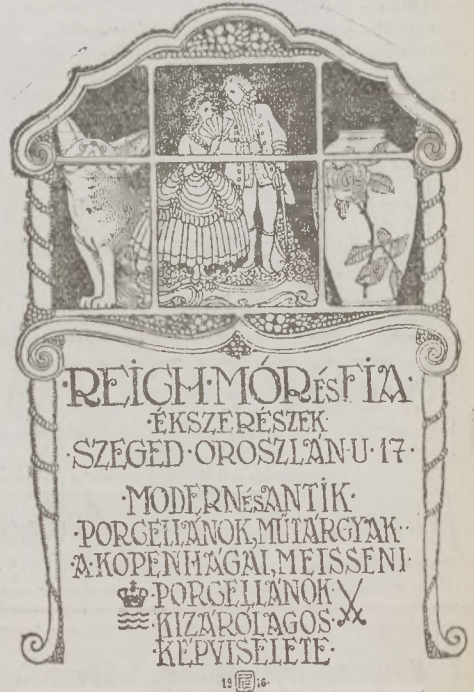 ·REICH·MÓR ÉS FIA·
·ÉKSZERÉSZEK·
·SZEGED·OROSZLÁN·U·17·
·MODERN ÉS ANTIK·
·PORCELLÁNOK, MŰTÁRGYAK··
·A·KOPENHÁGAI, MEISSENI·
·PORCELLÁNOK·
·KIZÁRÓLAGOS·
·KÉPVISELETE·
19 16·